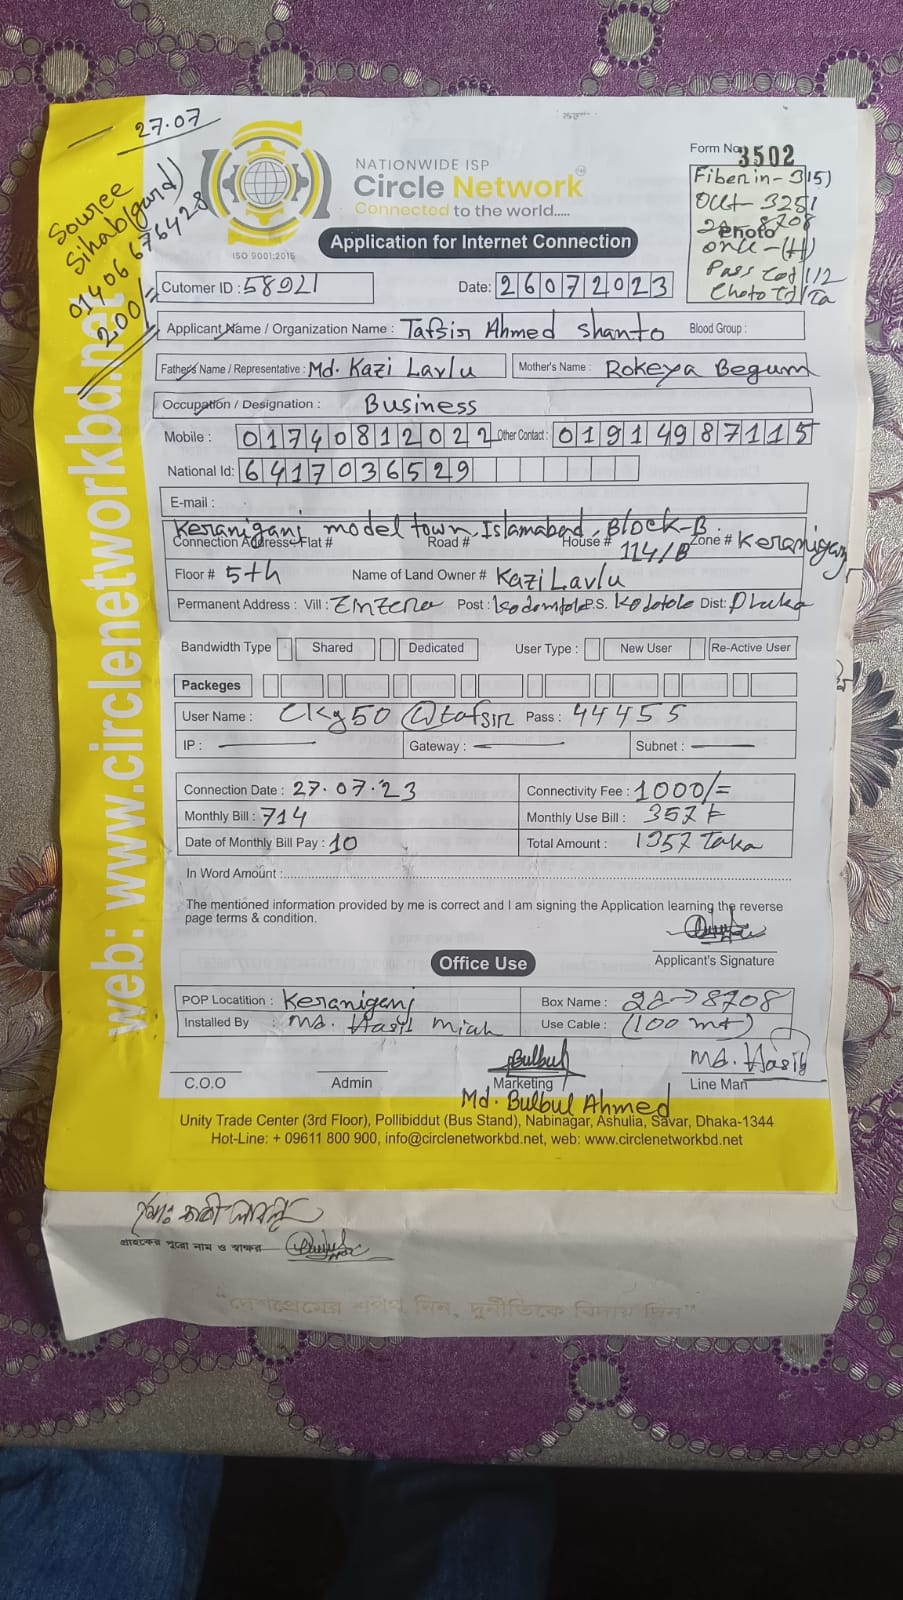 27.07
Source
Sihab(gurd)
01406676428
200/=
web: www.circlenetworkbd.net
NATIONWIDE ISP
Circle Network
Connected to the world.....
ISO 9001:2015
Application for Internet Connection
Form No. 3502
Fiber in - 3151
Out - 3251
Photo
onu - (H)
Cutomer ID : 58921
Date: 26072023
Applicant Name / Organization Name : Tafsir Ahmed Shanto Blood Group :
Father's Name / Representative : Md. Kazi Lavlu Mother's Name : Rokeya Begum
Occupation / Designation : Business
Mobile : 01740812022 Other Contact : 01914987115
National Id: 6417036529
E-mail :
Keraniganj model town, Islamabad, Block-B.
Connection Address: Flat # Road # House # 114/B Zone # Keraniganj
Floor # 5th Name of Land Owner # Kazi Lavlu
Permanent Address : Vill : Zinzera Post : P.S. Dist: Dhaka
Bandwidth Type Shared Dedicated User Type : New User Re-Active User
Packeges
User Name : Ckg50@tafsir Pass : 44455
IP : Gateway : Subnet :
Connection Date : 27.07.'23 Connectivity Fee : 1000/=
Monthly Bill : 714 Monthly Use Bill : 357 ৳
Date of Monthly Bill Pay : 10 Total Amount : 1357 Taka
In Word Amount :
The mentioned information provided by me is correct and I am signing the Application learning the reverse
page terms & condition.
Applicant's Signature
Office Use
POP Locatition : Keraniganj Box Name : 2a→8708
Installed By : Md. Hasib Miah Use Cable : (100 mt)
Bulbul Md. Hasib
C.O.O Admin Marketing Line Man
Md. Bulbul Ahmed
Unity Trade Center (3rd Floor), Pollibiddut (Bus Stand), Nabinagar, Ashulia, Savar, Dhaka-1344
Hot-Line: + 09611 800 900, info@circlenetworkbd.net, web: www.circlenetworkbd.net
মোঃ কাজী লাভলু
গ্রাহকের পুরো নাম ও স্বাক্ষর
"দেশপ্রেমের শপথ নিন, দুর্নীতিকে বিদায় দিন"